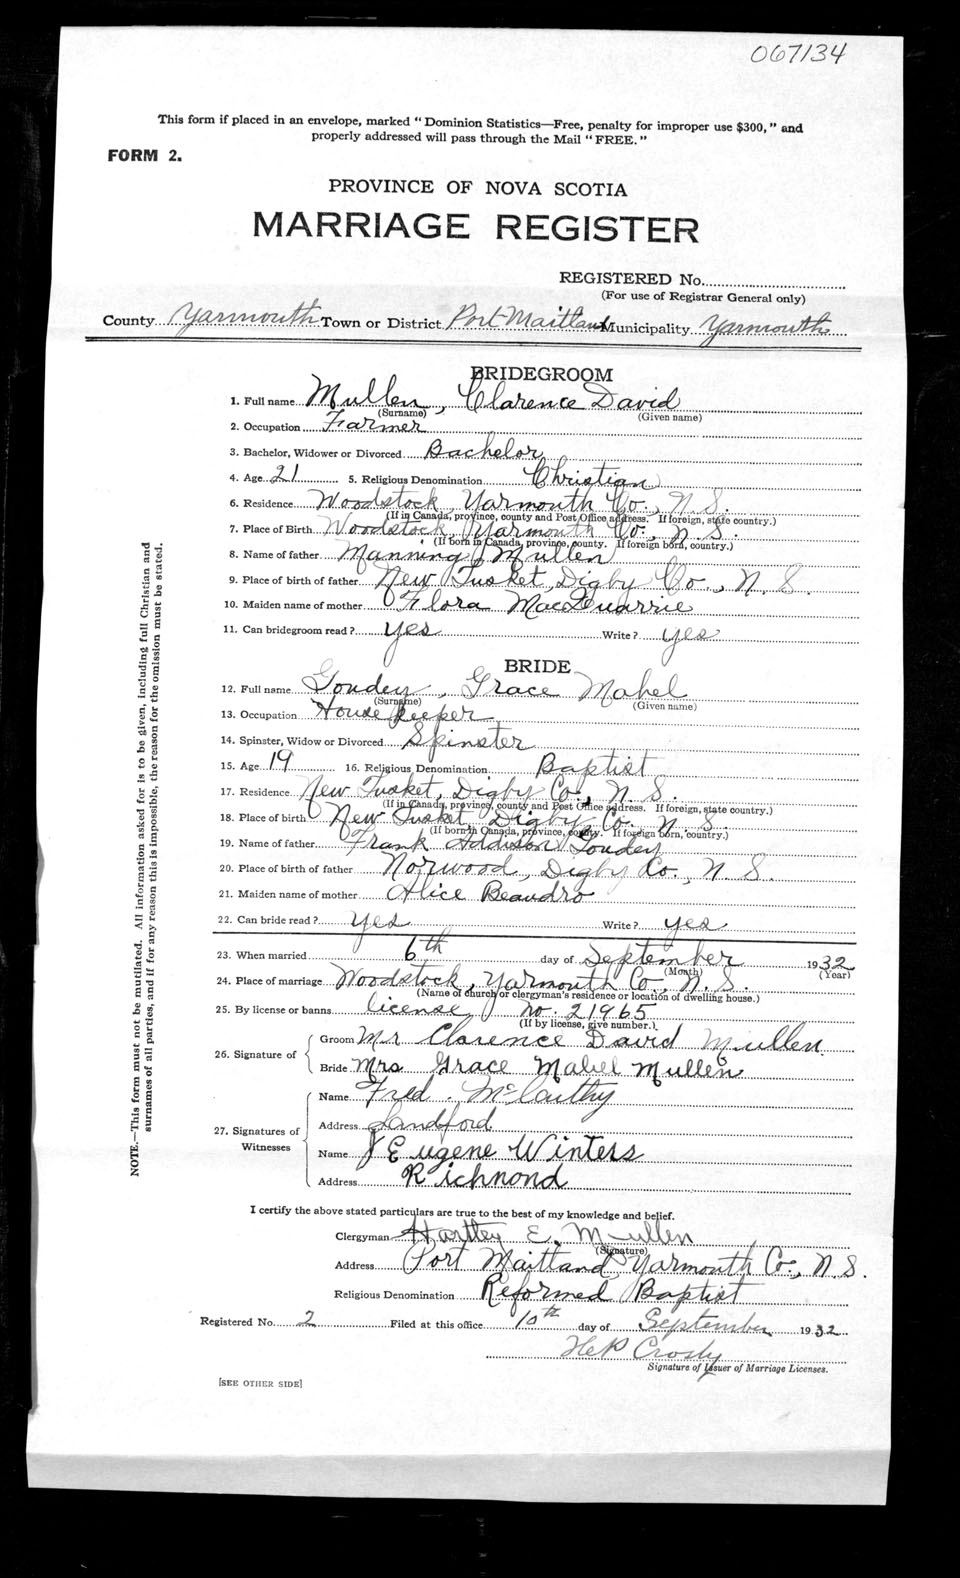 067134
This form if placed in an envelope, marked "Dominion Statistics—Free, penalty for improper use $300," and
properly addressed will pass through the Mail "FREE."
FORM 2.
PROVINCE OF NOVA SCOTIA
MARRIAGE REGISTER
REGISTERED No.
(For use of Registrar General only)
County Yarmouth Town or District Port Maitland Municipality Yarmouth
BRIDEGROOM
1. Full name Mullen, Clarence David
(Surname) (Given name)
2. Occupation Farmer
3. Bachelor, Widower or Divorced Bachelor
4. Age 21 5. Religious Denomination Christian
6. Residence Woodstock, Yarmouth Co., N.S.
(If in Canada, province, county and Post Office address. If foreign, state country.)
7. Place of Birth Woodstock, Yarmouth Co., N.S.
(If born in Canada, province, county. If foreign born, country.)
8. Name of father Manning Mullen
9. Place of birth of father New Tusket, Digby Co., N.S.
10. Maiden name of mother Flora MacQuarrie
11. Can bridegroom read? yes Write? yes
BRIDE
12. Full name Goudey, Grace Mabel
(Surname) (Given name)
13. Occupation Housekeeper
14. Spinster, Widow or Divorced Spinster
15. Age 19 16. Religious Denomination Baptist
17. Residence New Tusket, Digby Co., N.S.
(If in Canada, province, county and Post Office address. If foreign, state country.)
18. Place of birth New Tusket Digby Co. N.S.
(If born in Canada, province, county. If foreign born, country.)
19. Name of father Frank Addison Goudey
20. Place of birth of father Norwood, Digby Co., N.S.
21. Maiden name of mother Alice Beaudro
22. Can bride read? yes Write? yes
23. When married 6th day of September 1932
(Month) (Year)
24. Place of marriage Woodstock, Yarmouth Co., N.S.
(Name of church or clergyman's residence or location of dwelling house.)
25. By license or banns license no. 21965
(If by license, give number.)
26. Signature of Groom Mr Clarence David Mullen
Bride Mrs Grace Mabel Mullen
27. Signatures of Witnesses Name Fred McCarthy
Address Sandford
Name J Eugene Winters
Address Richmond
I certify the above stated particulars are true to the best of my knowledge and belief.
Clergyman Hartley E. Mullen
(Signature)
Address Port Maitland, Yarmouth Co., N.S.
Religious Denomination Reformed Baptist
Registered No. 2 Filed at this office 10th day of September 1932
Crosby
Signature of Issuer of Marriage Licenses.
[SEE OTHER SIDE]
NOTE.—This form must not be mutilated. All information asked for is to be given, including full Christian and
surnames of all parties, and if for any reason this is impossible, the reason for the omission must be stated.